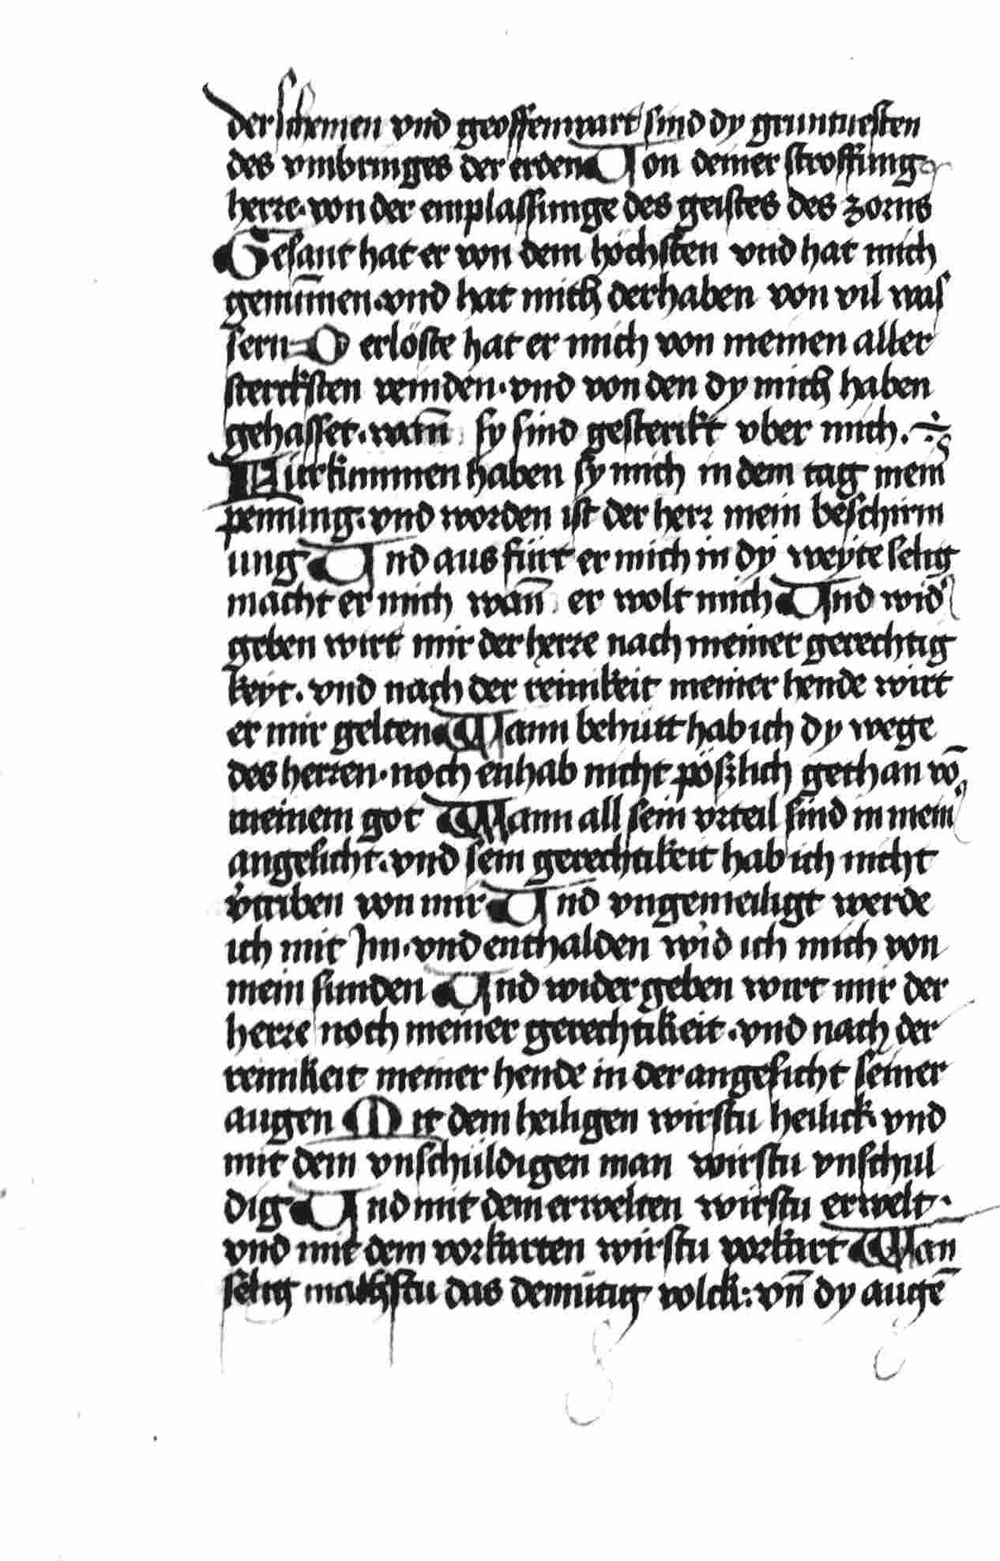 derschemen vnd geoffenwart sind dy gruntuesten
des vmbringes der erden Von deiner stroffung
herre. von der emplassunge des geistes des zorns
Gesant hat er von dem höchsten vnd hat mich
genūmen. vnd hat mich derhaben von vil was
sern O erlöste hat er mich von meinen aller
stercksten veinden. vnd von den dy mich haben
gehasset. wañ sy sind gesterikt vber mich.
Furkummen haben sy mich in dem tag mein
peinung. vnd worden ist der herr mein beschirm
ung Vnd aus fürt er mich in dy weyte selig
macht er mich wañ er wolt mich Vnd wid
geben wirt mir der herre nach meiner gerechtig
keyt. vnd nach der reinikeit meiner hende wirt
er mir gelten Wann behütt hab ich dy wege
des herren. noch enhab nicht pößlich gethan vō
meinem got Wann all sein vrteil sind in mein
angesicht. vnd sein gerechtikeit hab ich nicht
v̾triben von mir Vnd vngemeiligt werde
ich mit Im. vnd enthalden wi̾d ich mich von
mein sunden Vnd wider geben wirt mir der
herre noch meiner gerechtikeit. vnd nach der
reinikeit meiner hende in der angesicht seiner
augen Mit dem heiligen wirstu heilick vnd
mit dem vnschüldigen man wirstu vnschul
dig Vnd mit dem erwelten wirstu erwelt.
vnd mit dem vorkarten wirstu vorkart Wan
selig machstu das demütig volck: vñ dy augē